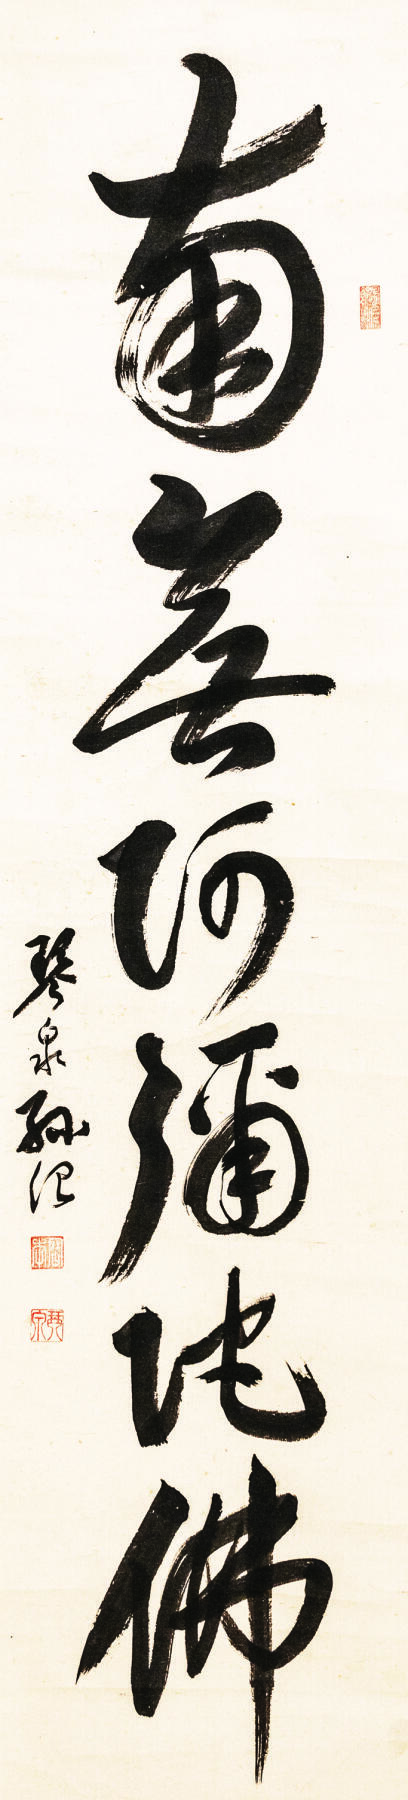 南無阿彌陀佛
琴泉孫澄